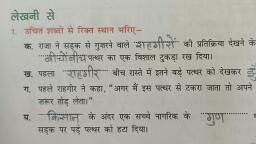 लेखनी से
१. उचित शब्दों से रिक्त स्थान भरिए–
क. राजा ने सड़क से गुजरने वाले राहगीरों की प्रतिक्रिया देखने के
बीचोंबीच पत्थर का एक विशाल टुकड़ा रख दिया।
ख. पहला राहगीर बीच रास्ते में इतने बड़े पत्थर को देखकर
ग. पहले राहगीर ने कहा, "अगर मैं इस पत्थर से टकरा जाता तो अपने
जरूर तोड़ लेता।"
घ. किसान के अंदर एक सच्चे नागरिक के गुण
सड़क पर पड़े पत्थर को हटा दिया।